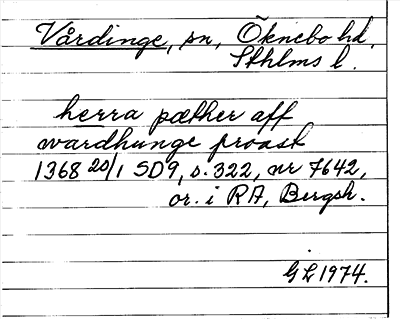 Vårdinge, sn, Öknebo hd,
Sthlms l.
herra pæther aff
wardhunge proast
1368 20/1 SD9, s. 322, nr 7642,
or. i RA, Bergsh.
GL 1974.